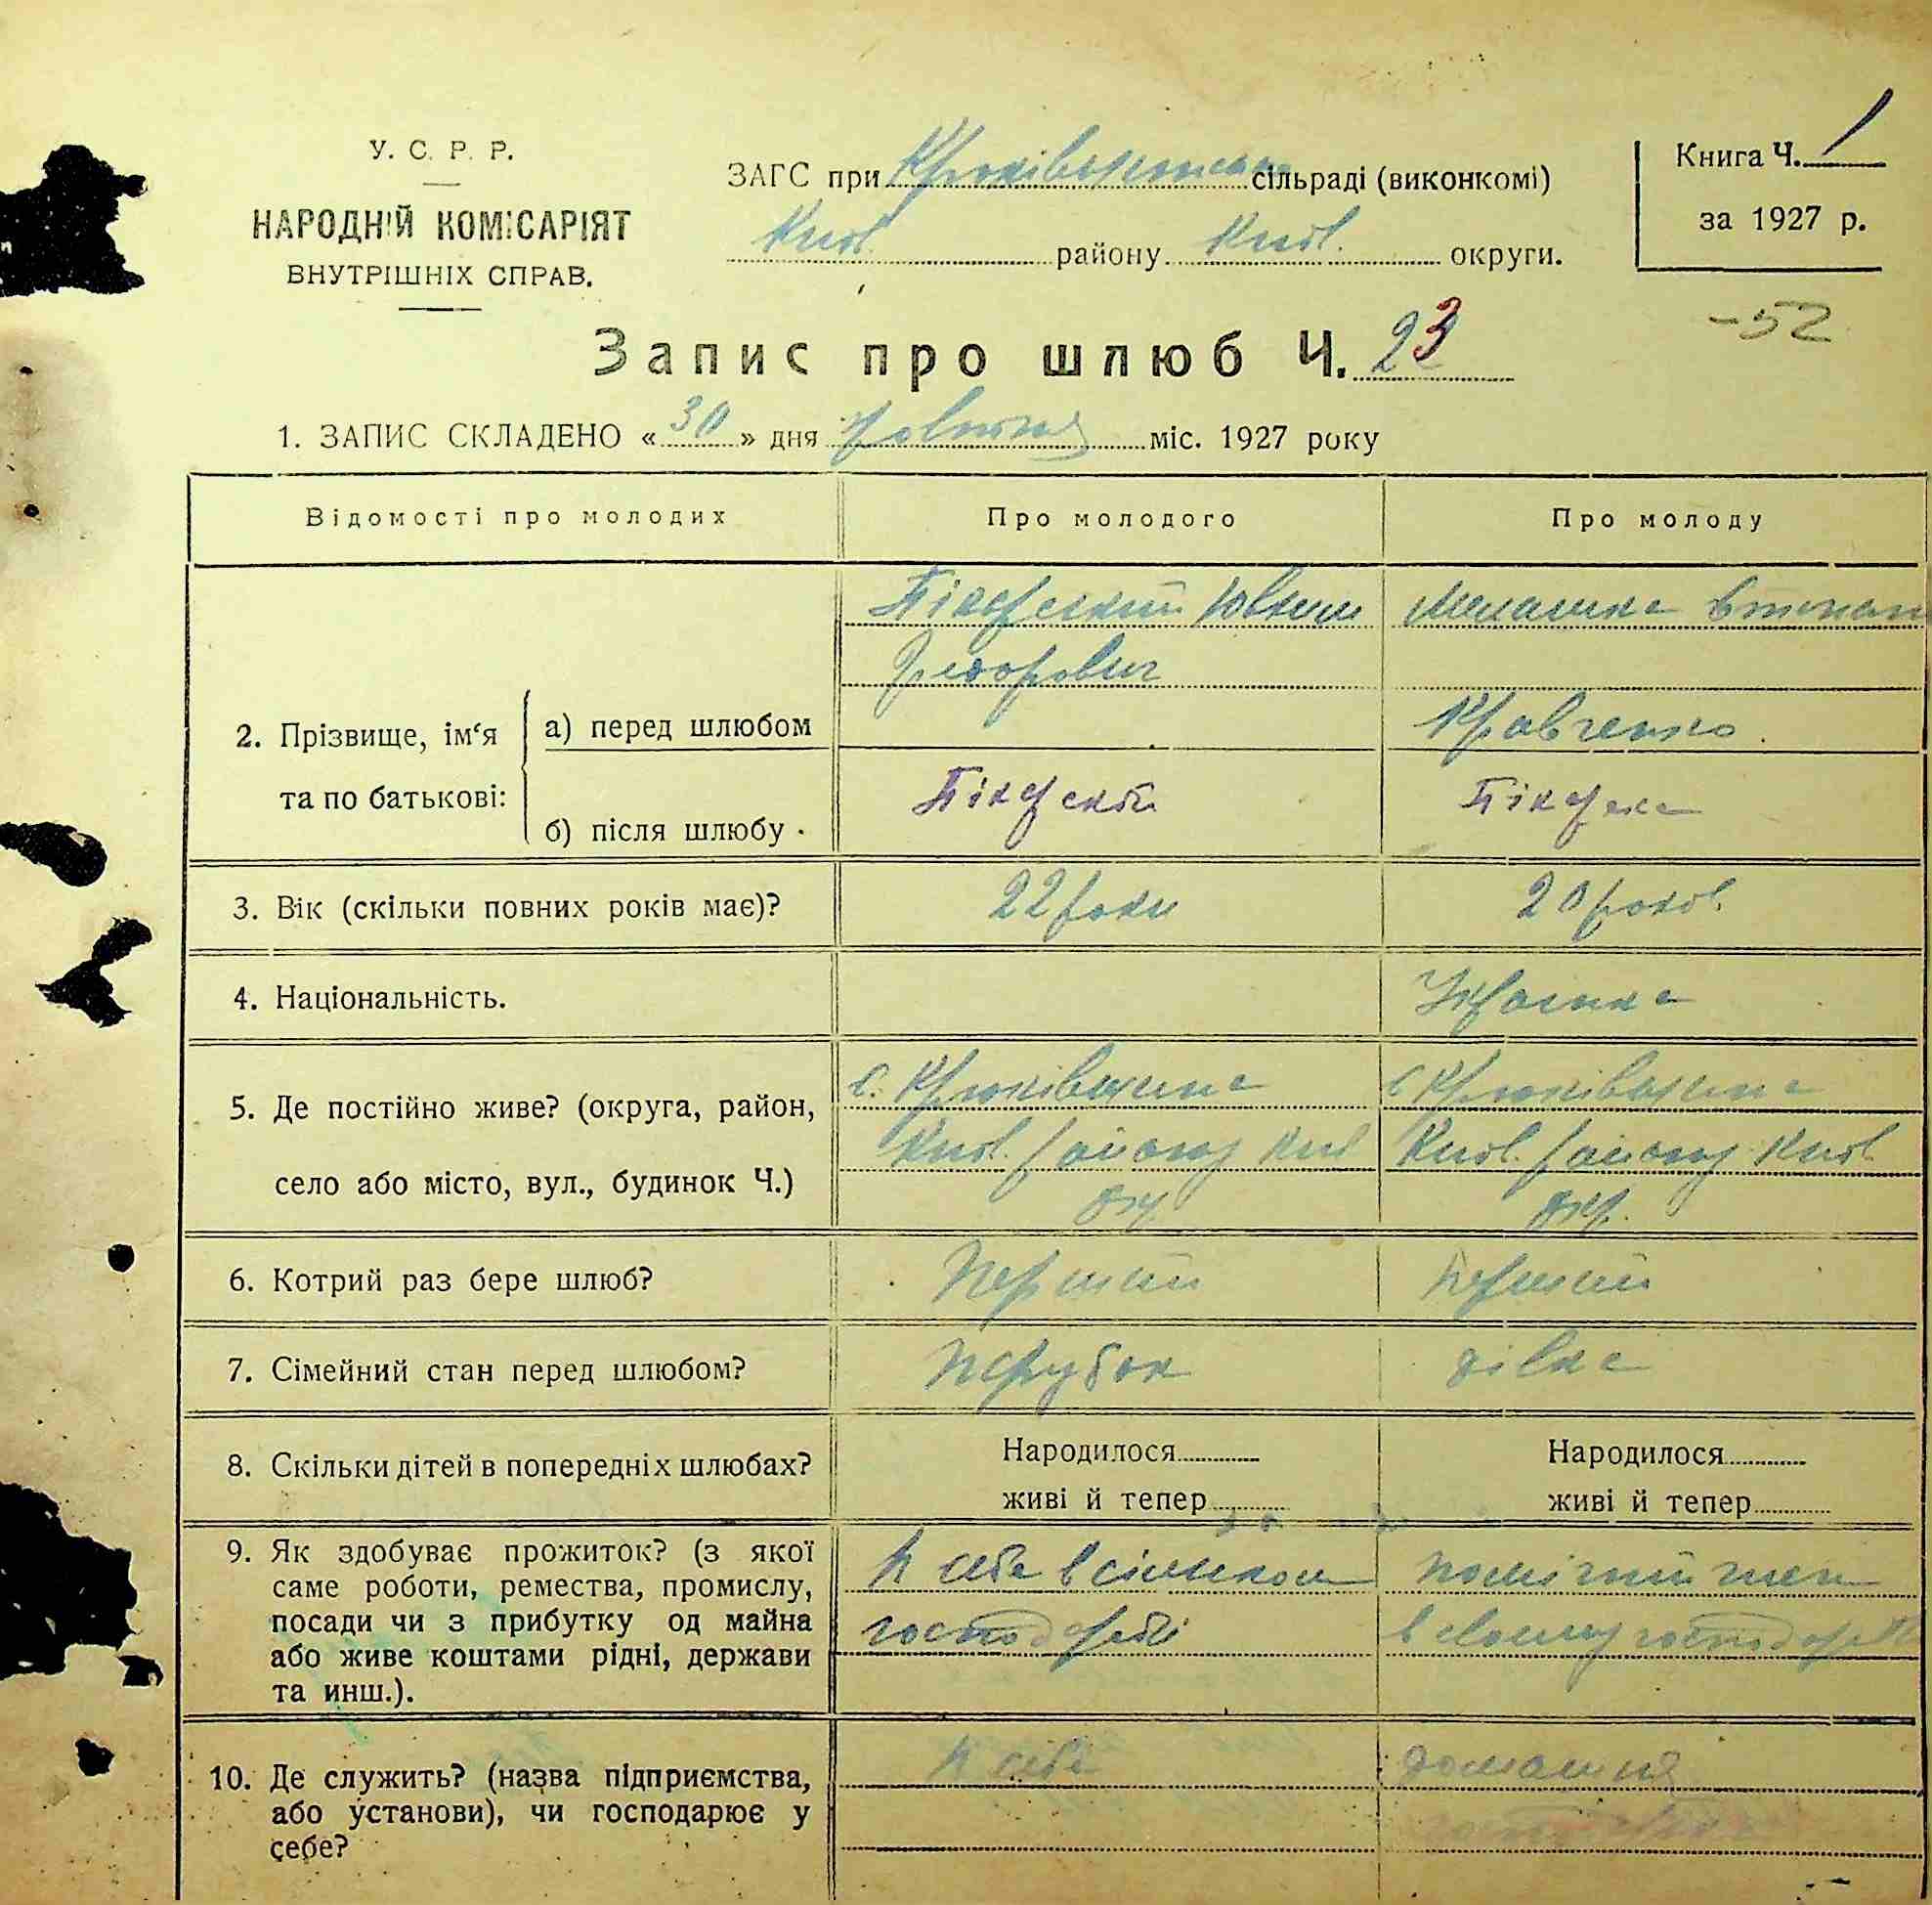 У. С. Р. Р.
НАРОДНІЙ КОМІСАРІЯТ
ВНУТРІШНІХ СПРАВ.
ЗАГС при Крюківщинській сільраді (виконкомі)
Київ. району Київ. округи.
Книга Ч. 1
за 1927 р.
-52
Запис про шлюб Ч. 23
1. ЗАПИС СКЛАДЕНО «30» дня жовтня міс. 1927 року
Відомості про молодих
Про молодого
Про молоду
2. Прізвище, ім‘я та по батькові:
а) перед шлюбом
Федорович
Мелашка
Кравченко
б) після шлюбу
3. Вік (скільки повних років має)?
22 роки
20 років
4. Національність.
Українка
5. Де постійно живе? (округа, район,
село або місто, вул., будинок Ч.)
с. Крюківщина
Київ. району Київ
окр.
с Крюківщина
Київ. району Київ.
окр.
6. Котрий раз бере шлюб?
Перший
Перший
7. Сімейний стан перед шлюбом?
Парубок
дівка
8. Скільки дітей в попередніх шлюбах?
Народилося
живі й тепер
Народилося
живі й тепер
9. Як здобуває прожиток? (з якої
саме роботи, ремества, промислу,
посади чи з прибутку од майна
або живе коштами рідні, держави
та инш.).
У себе в сільськом
господарстві
помічний член
в своєму господарстві
10. Де служить? (назва підприємства,
або установи), чи господарює у
себе?
У себе
домашня